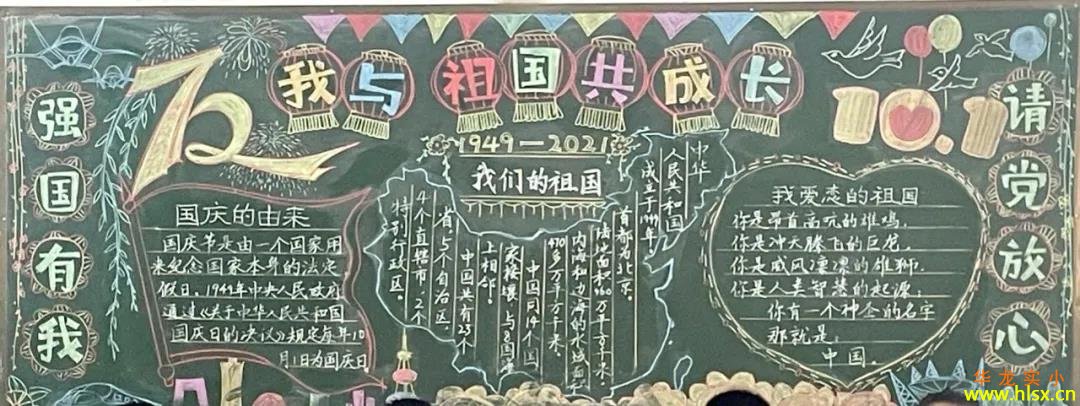 我与祖国共成长
72
10.1
强国有我
请党放心
国庆的由来
国庆节是由一个国家用
来纪念国家本身的法定
假日。1949年中央人民政府
通过《关于中华人民共和国
国庆日的决议》规定每年10
月1日为国庆日
1949—2021
我们的祖国
中华
人民共和国
成立于1949年,
首都为北京。
陆地面积960万平方千米,
内海和边海的水域面积
470多万平方千米。
中国同14个国
家接壤,与8国海
上相邻。
中国共有23个
省、5个自治区、
4个直辖市、2个
特别行政区。
我爱恋的祖国
你是昂首高吭的雄鸡,
你是冲天腾飞的巨龙。
你是威风凛凛的雄狮,
你是人类智慧的起源,
你有一个神圣的名字
那就是:
中国。
华龙实小
www.hlsx.cn